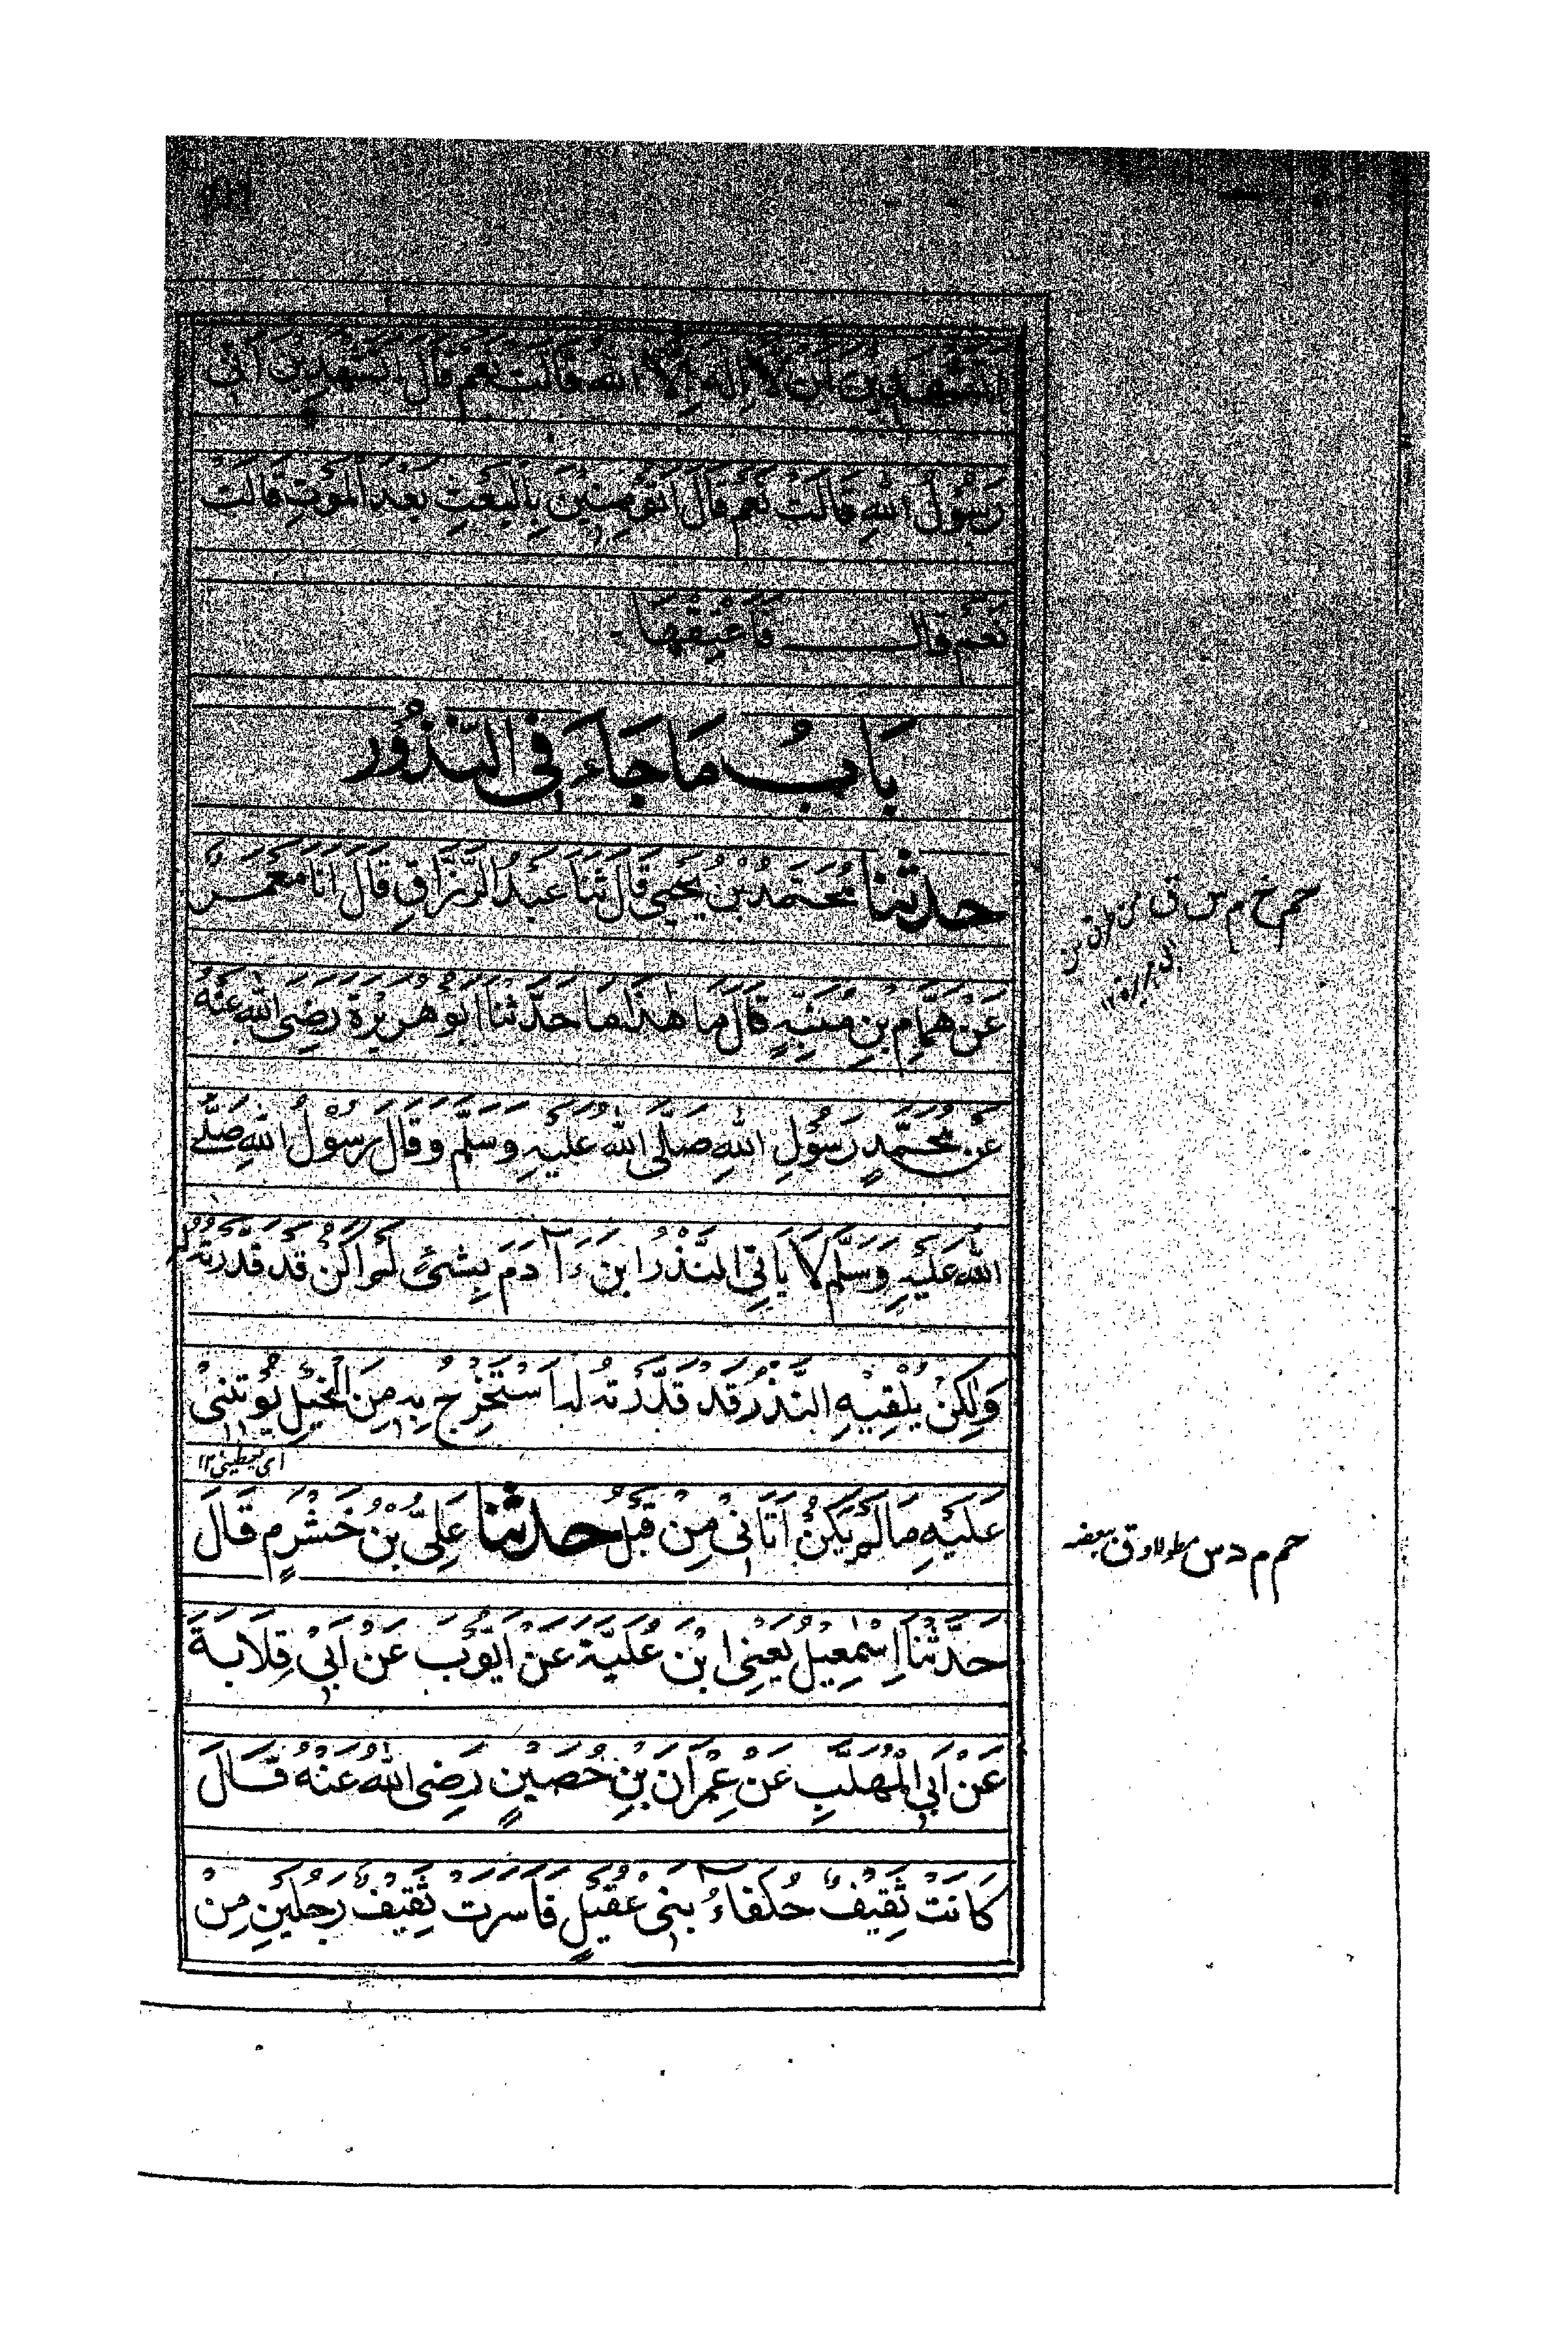 اَتَشْهَدِيْنَ اَنْ لَا اِلٰهَ اِلَّا اللهُ قَالَتْ نَعَمْ قَالَ اَتَشْهَدِيْنَ اَنِّي
رَسُوْلُ اللهِ قَالَتْ نَعَمْ قَالَ اَتُؤْمِنِيْنَ بِالْبَعْثِ بَعْدَ الْمَوْتِ قَالَتْ
نَعَمْ قَالَ فَاَعْتِقْهَا
بَابُ مَا جَاءَ فِي النُّذُوْرِ
حدثنا مُحَمَّدُ بْنُ يَحْيٰى قَالَ ثَنَا عَبْدُ الرَّزَّاقِ قَالَ اَنَا مَعْمَرٌ
عَنْ هَمَّامِ بْنِ مُنَبِّهٍ قَالَ مَا هٰذَا مَا حَدَّثَنَا اَبُوْ هُرَيْرَةَ رَضِىَ اللهُ عَنْهُ
عَنْ مُحَمَّدٍ رَسُوْلِ اللهِ صَلَّى اللهُ عَلَيْهِ وَسَلَّمَ وَقَالَ رَسُوْلُ اللهِ صَلَّى
اللهُ عَلَيْهِ وَسَلَّمَ لَا يَاْتِي النَّذْرُ ابْنَ ءَادَمَ بِشَىْءٍ لَمْ اَكُنْ قَدْ قَدَّرْتُهُ
وَلٰكِنْ يُلْقِيْهِ النَّذْرُ قَدْ قَدَّرْتُهُ لَهُ اَسْتَخْرِجُ بِهِ مِنَ الْبَخِيْلِ يُوْتِيْنِىْ
اى يعطينى ١٢
عَلَيْهِ مَا لَمْ يَكُنْ اٰتَانِىْ مِنْ قَبْلُ حدثنا عَلِىُّ بْنُ خَشْرَمٍ قَالَ
حَدَّثَنَا اِسْمٰعِيْلُ يَعْنِى ابْنَ عُلَيَّةَ عَنْ اَيُّوْبَ عَنْ اَبِىْ قِلَابَةَ
عَنْ اَبِى الْمُهَلَّبِ عَنْ عِمْرَانَ بْنِ حُصَيْنٍ رَضِىَ اللهُ عَنْهُ قَالَ
كَانَتْ ثَقِيْفٌ حُلَفَاءُ بَنِىْ عُقَيْلٍ فَاَسَرَتْ ثَقِيْفٌ رَجُلَيْنِ مِنْ
حم خ م س ق من طرق عن
ابى هريرة ١٢
حم م د س مطولا و ق بعضه